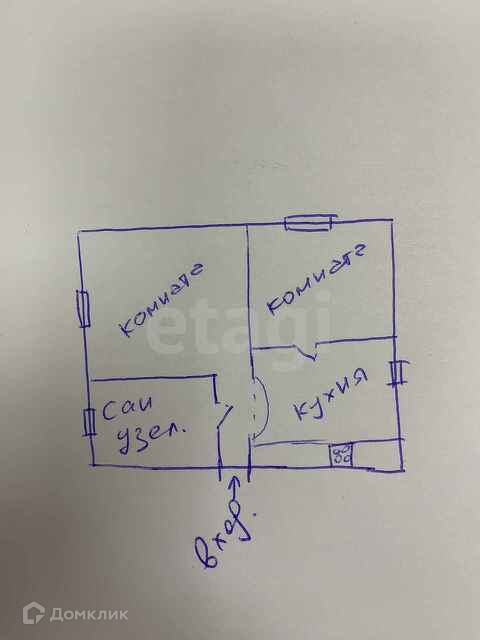 комната
комната
etagi
Сан
узел.
кухня
вход.
Домклик